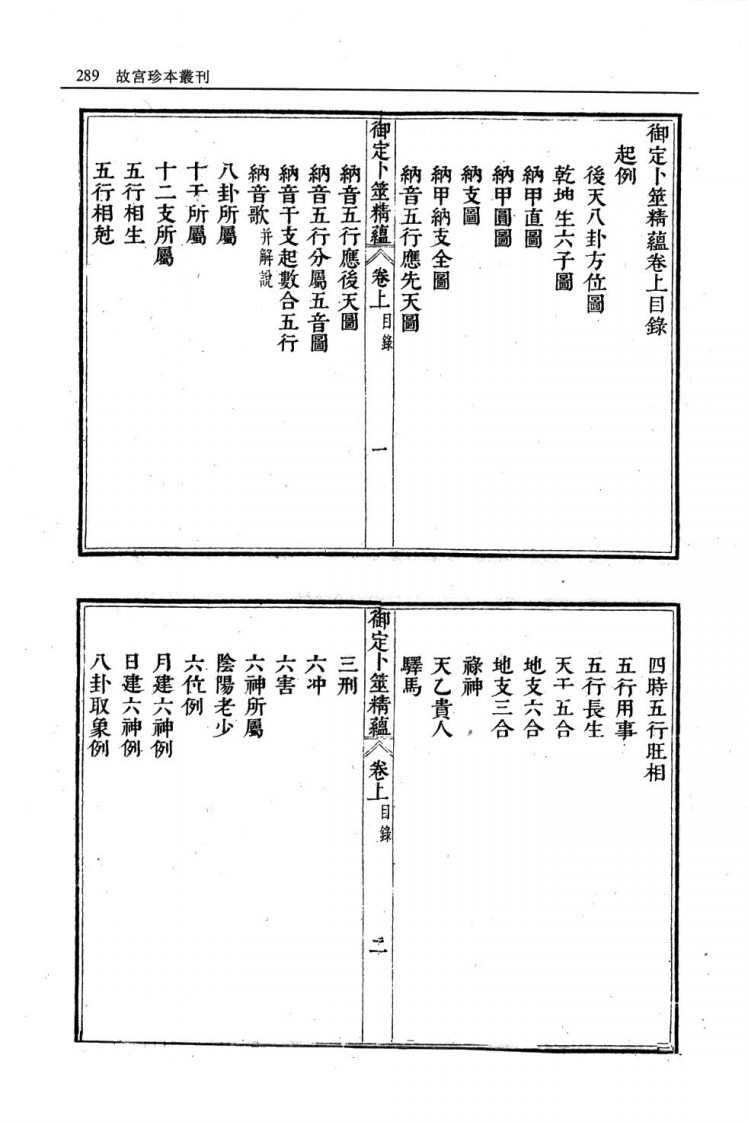 289 故宮珍本叢刊
御定卜筮精蘊卷上目錄
起例
後天八卦方位圖
乾坤生六子圖
納甲直圖
納甲圓圖
納支圖
納甲納支全圖
納音五行應先天圖
御定卜筮精蘊 卷上 目錄 一
納音五行應後天圖
納音五行分屬五音圖
納音干支起數合五行
納音歌并解說
八卦所屬
十干所屬
十二支所屬
五行相生
五行相尅
四時五行旺相
五行用事
五行長生
天干五合
地支六合
地支三合
祿神
天乙貴人
驛馬
御定卜筮精蘊 卷上 目錄 二
三刑
六冲
六害
六神所屬
陰陽老少
六位例
月建六神例
日建六神例
八卦取象例